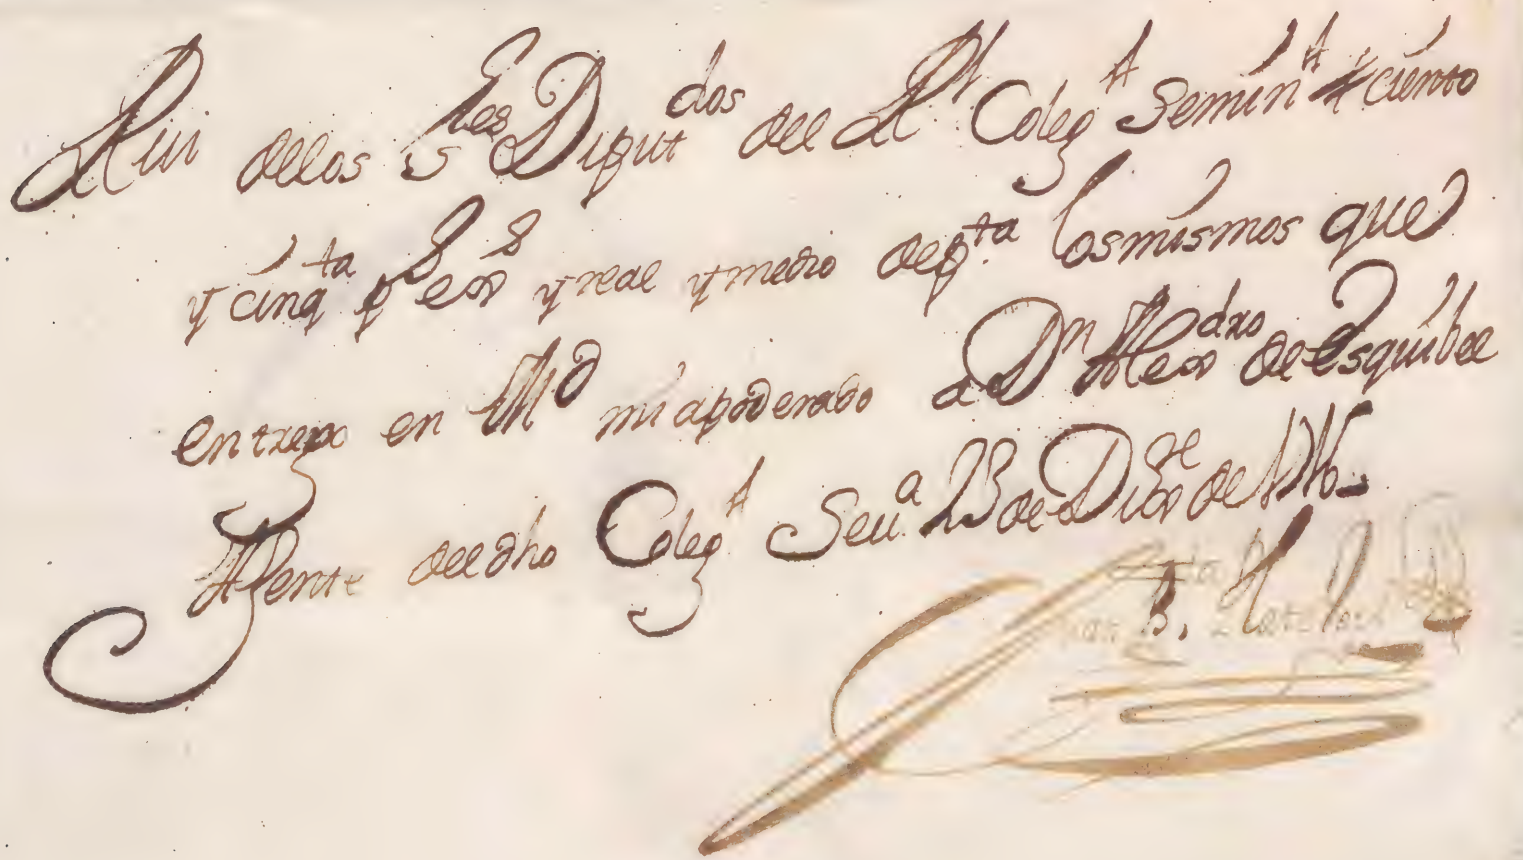 Reciui de los S.res Diput.dos del R.l Coleg.o Semin.o ciento
y cinq.ta pesos y real y medio de p.ta los mismos que
entrego en M.d mi apoderado a D.n Alexdro de Esquibel
Agente del dho Coleg.o Seu.a 23 de Diz.re de